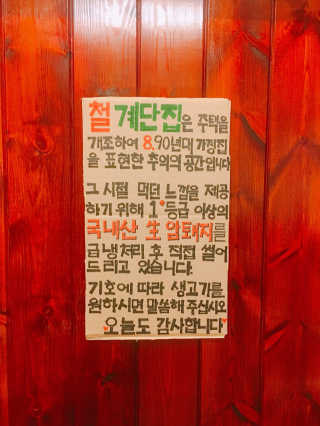 철계단집은 주택을
개조하여 8,90년대 가정집
을 표현한 추억의 공간입니다
그 시절 먹던 느낌을 제공
하기 위해 1등급 이상의
국내산 生 암퇘지를
급냉처리 후 직접 썰어
드리고 있습니다.
기호에 따라 생고기를
원하시면 말씀해 주십시오
오늘도 감사합니다